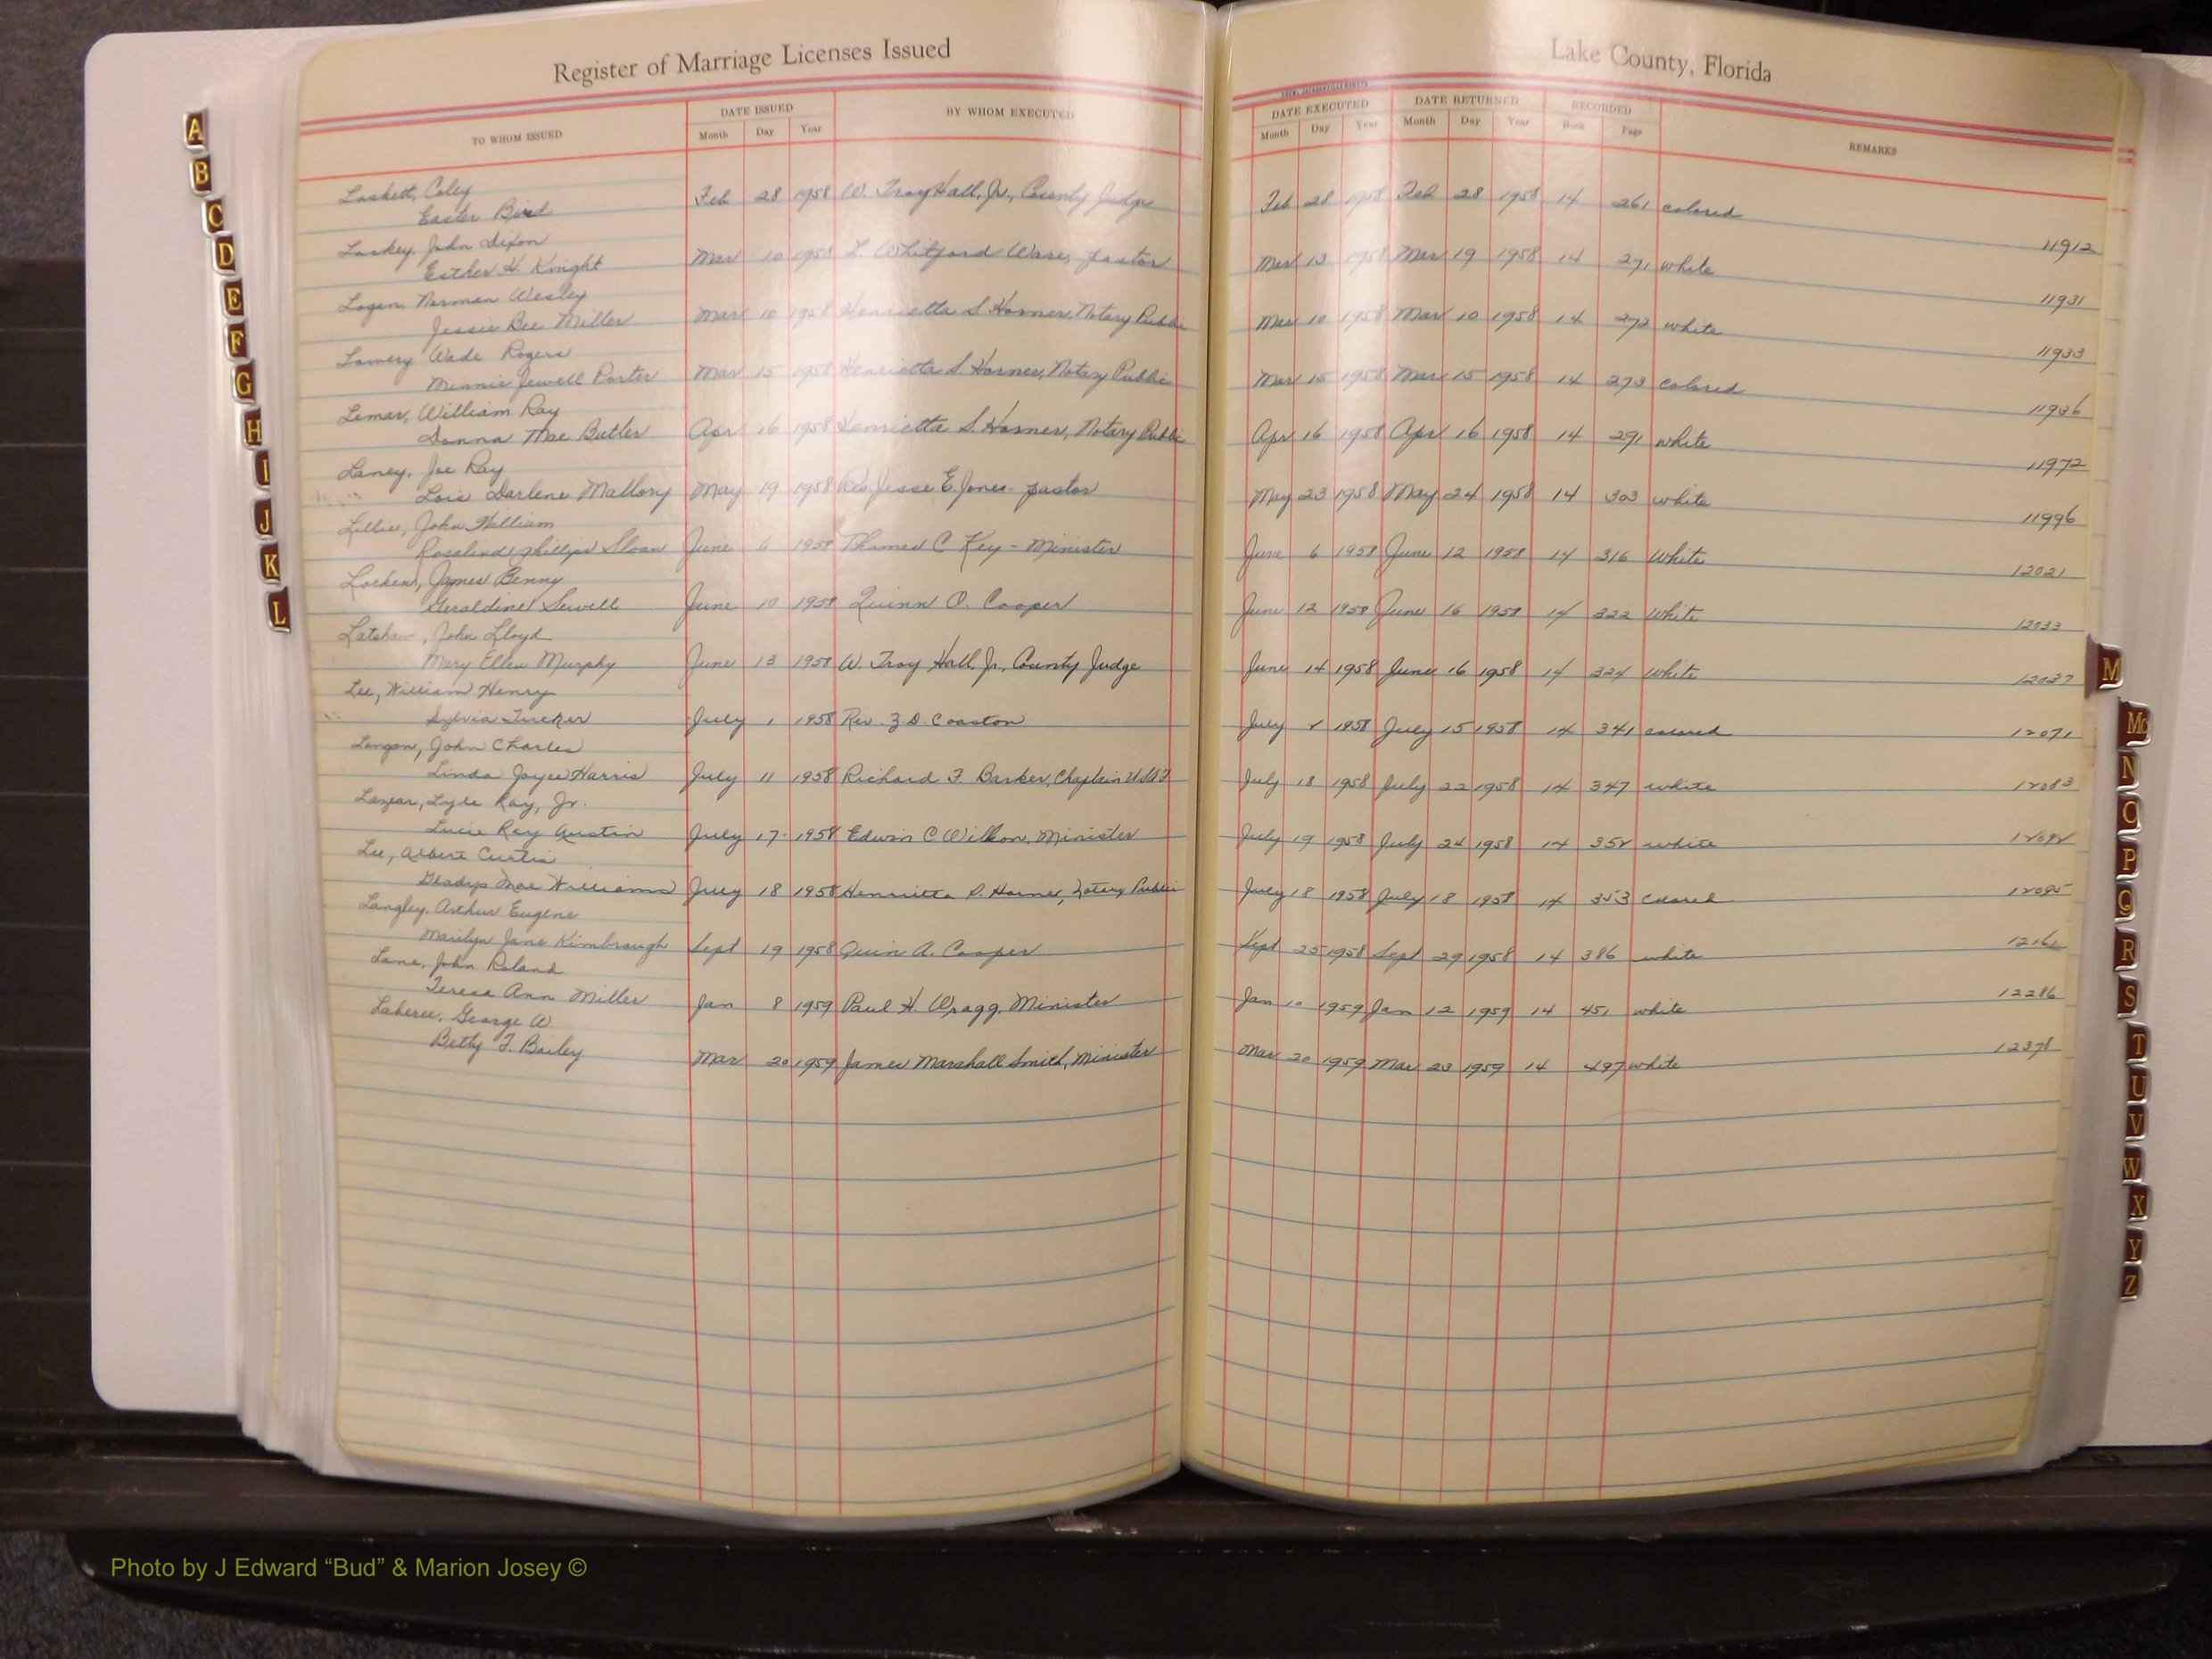 Register of Marriage Licenses Issued
Lake County, Florida
TO WHOM ISSUED DATE ISSUED BY WHOM EXECUTED DATE EXECUTED DATE RETURNED RECORDED REMARKS
Month Day Year Month Day Year Month Day Year Book Page
Laskett, Coley
Easter Bird Feb 28 1958 W. Troy Hall, Jr., County Judge Feb 28 1958 Feb 28 1958 14 261 colored 11912
Laskey, John Dixon
Esther H. Knight Mar 10 1958 L. Whitford Ware, pastor Mar 13 1958 Mar 19 1958 14 271 white 11931
Logan, Norman Wesley
Jessie Bee Miller Mar 10 1958 Henrietta S. Horner, Notary Public Mar 10 1958 Mar 10 1958 14 272 white 11933
Lowery, Wade Rogers
Minnie Jewell Porter Mar 15 1958 Henrietta S. Horner, Notary Public Mar 15 1958 Mar 15 1958 14 273 colored 11936
Lemar, William Ray
Donna Mae Butler Apr 16 1958 Henrietta S. Horner, Notary Public Apr 16 1958 Apr 16 1958 14 291 white 11972
Laney, Joe Ray
Lois Darlene Mallory May 19 1958 Rev. Jesse E. Jones - pastor May 23 1958 May 24 1958 14 303 white 11996
Lillie, John William
Rosalind Phillips Sloan June 6 1958 Thomas C Key - Minister June 6 1958 June 12 1958 14 316 White 12021
James Benny
Geraldine Sewell June 10 1958 Quinn O. Cooper June 12 1958 June 16 1958 14 322 White 12033
Latshaw, John Lloyd
Mary Ellen Murphy June 13 1958 W. Troy Hall, Jr., County Judge June 14 1958 June 16 1958 14 324 White 12037
Lee, William Henry
Sylvia Tucker July 1 1958 Rev. Z.D. Coaston July 2 1958 July 15 1958 14 341 colored 12071
Langan, John Charles
Linda Joyce Harris July 11 1958 Richard F. Barker, Chaplain USAF July 18 1958 July 22 1958 14 347 white 12083
Lazear, Lyle Ray, Jr.
Lucie Rey Austin July 17 1958 Edwin C Wilson, Minister July 19 1958 July 24 1958 14 352 white 12092
Lee, Albert Curtis
Gladys Mae Williams July 18 1958 Henrietta S. Horner, Notary Public July 18 1958 July 18 1958 14 353 colored 12095
Langley, Arthur Eugene
Marilyn Jane Kimbrough Sept 19 1958 Quin A. Cooper Sept 25 1958 Sept 29 1958 14 386 white
Lane, John Roland
Teresa Ann Miller Jan 8 1959 Paul H. Wragg, Minister Jan 10 1959 Jan 12 1959 14 451 white 12286
Laheree, George W.
Betty J. Bailey Mar 20 1959 James Marshall Smith, Minister Mar 20 1959 Mar 23 1959 14 497 white 12378
A
B
C
D
E
F
G
H
I
J
K
L
M
Mc
N
O
P
Q
R
S
T
U
V
W
X
Y
Z
Photo by J Edward “Bud” & Marion Josey ©